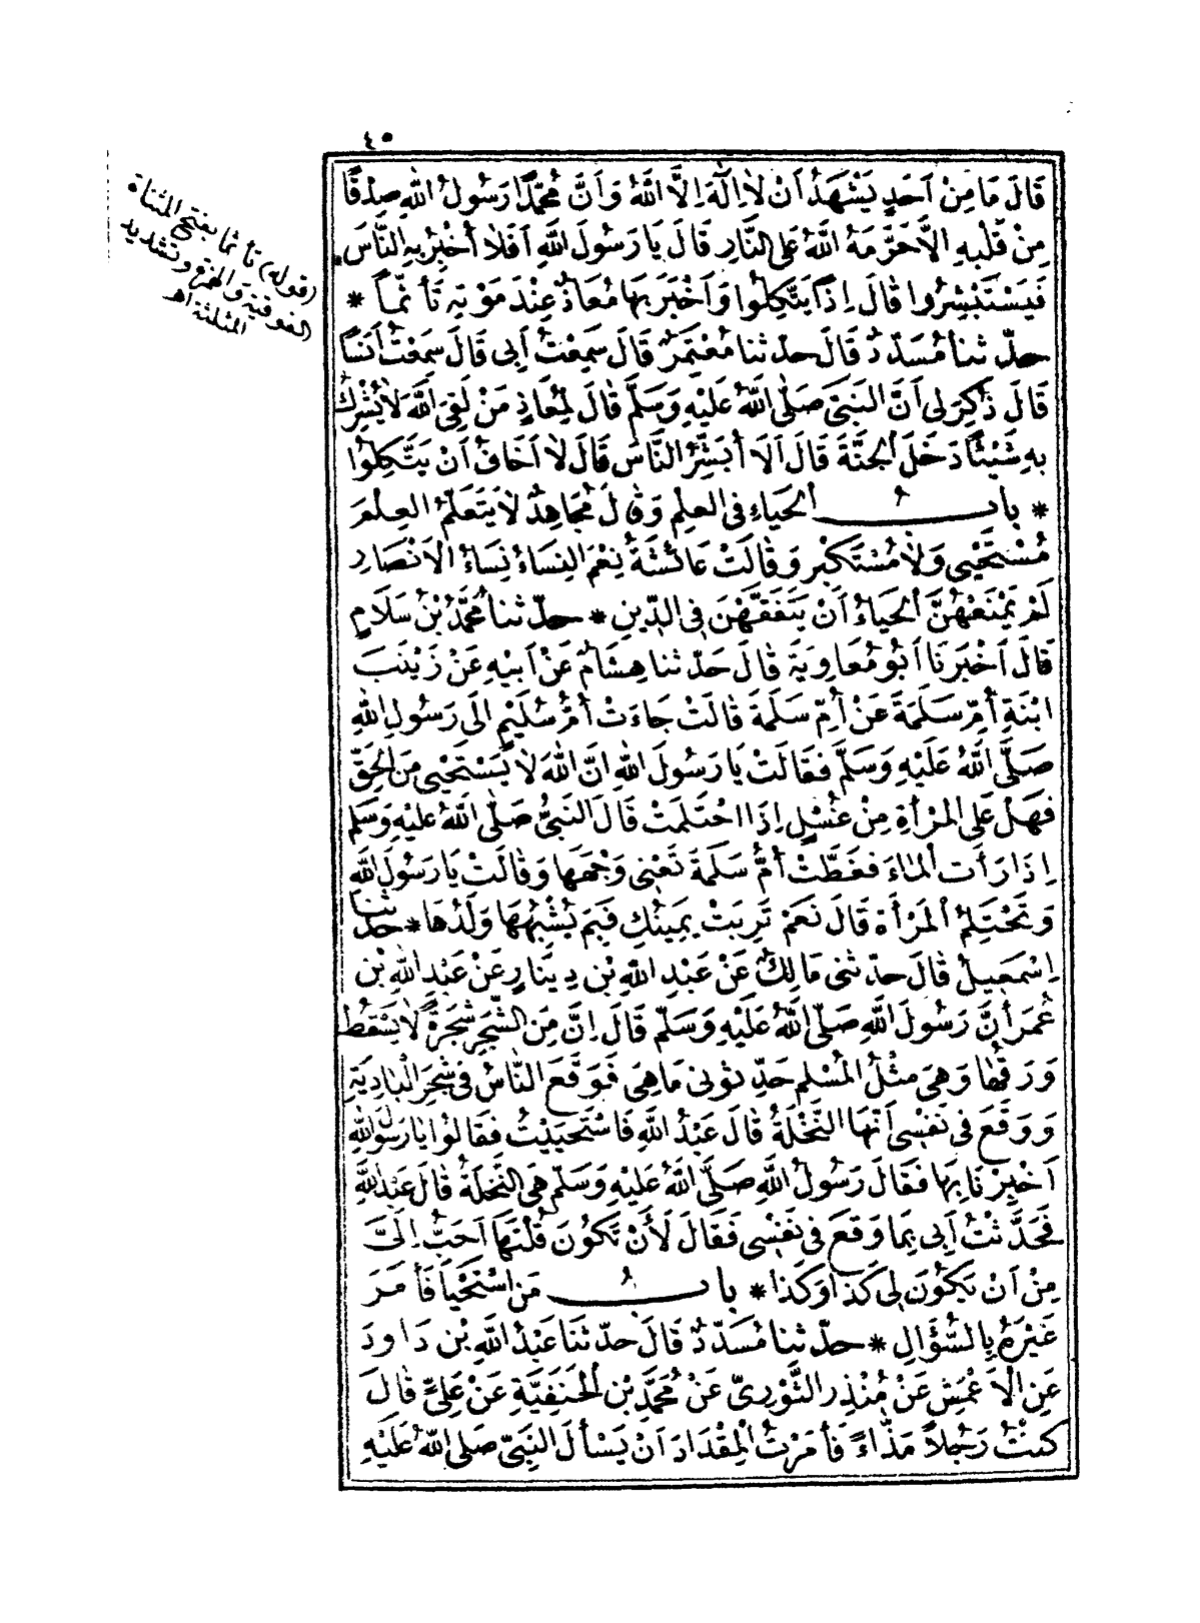 ٤٥
قَالَ مَا مِنْ اَحَدٍ يَشْهَدُ اَنْ لَا اِلَهَ اِلَّا اللَّهُ وَاَنَّ مُحَمَّدًا رَسُولُ اللَّهِ صِدْقًا
مِنْ قَلْبِهِ اِلَّا حَرَّمَهُ اللَّهُ عَلَى النَّارِ قَالَ يَا رَسُولَ اللَّهِ اَفَلَا اُخْبِرُ بِهِ النَّاسَ
فَيَسْتَبْشِرُوا قَالَ اِذًا يَتَّكِلُوا وَاَخْبَرَ بِهَا مُعَاذٌ عِنْدَ مَوْتِهِ تَأَثُّمًا *
حدّثنا مُسَدَّدٌ قَالَ حدثنا مُعْتَمِرٌ قَالَ سَمِعْتُ اَبِى قَالَ سَمِعْتُ اَنَسًا
قَالَ ذُكِرَ لِى اَنَّ النَّبِىَّ صَلَّى اللَّهُ عَلَيْهِ وَسَلَّمَ قَالَ لِمُعَاذٍ مَنْ لَقِىَ اللَّهَ لَا يُشْرِكُ
بِهِ شَيْئًا دَخَلَ الْجَنَّةَ قَالَ اَلَا اُبَشِّرُ النَّاسَ قَالَ لَا اَخَافُ اَنْ يَتَّكِلُوا
* بابُ الْحَيَاءِ فِى العِلْمِ وَقَالَ مُجَاهِدٌ لَا يَتَعَلَّمُ العِلْمَ
مُسْتَحْيِى وَلَا مُسْتَكْبِر وَقَالَتْ عَائشَةُ نِعْمَ النِسَاءُ نِسَاءُ الْاَنْصَارِ
لَمْ يَمْنَعْهُنَّ الْحَيَاءُ اَنْ يَتَفَقَّهْنَ فِى الدِّينِ * حدّثنا مُحَمَّدُ بْنُ سَلَامٍ
قَالَ اَخْبَرَنَا اَبُو مُعَاوِيَةَ قَالَ حَدّثنا هِشَامٌ عَنْ اَبِيهِ عَنْ زَيْنَبَ
ابْنَةِ اُمِّ سَلَمَةَ عَنْ اُمِّ سَلَمَةَ قَالَتْ جَاءَتْ اُمُّ سُلَيْمٍ اِلَى رَسُولِ اللَّهِ
صَلَّى اللَّهُ عَلَيْهِ وَسَلَّمَ فقَالَتْ يَا رَسُولَ اللَّهِ اِنَّ اللَّهَ لَا يَسْتَحْيِى مِنَ الْحَقِّ
فهَلْ عَلَى المَرْأةِ مِنْ غُسْلٍ اِذَا احْتَلَمَتْ قَالَ النَّبِىُّ صَلَّى اللَّهُ عليهِ وَسَلم
اِذَا رَأَتِ الْمَاءَ فغَطَّتْ اُمُّ سَلَمَةَ تَعْنِى وَجْهَهَا وَقَالَتْ يَا رَسُولَ اللَّهِ
وَتَحْتَلِمُ الْمَرْأَة قَالَ نَعَمْ تَرِبَتْ يَمِينُكِ فَبِمَ يُشْبِهُهَا وَلَدُهَا * حدّثنا
اِسْمَعِيلُ قَالَ حدّثنى مَالِكٌ عَنْ عَبْدِ اللَّهِ بْنِ دِينَارٍ عَنْ عَبْدِ اللَّهِ بْنِ
عُمَرَ اَنَّ رَسُولَ اللَّهِ صَلَّى اللَّهُ عَلَيْهِ وَسَلَّمَ قَالَ اِنَّ مِنَ الشَّجَرِ شَجَرَةً لَا يَسْقُطُ
وَرَقُهَا وَهِىَ مَثَلُ الْمُسْلِمِ حَدِّثونِى مَا هِىَ فَوَقَعَ النَّاسُ فِى شَجَرِ الْبَادِيَةِ
وَوَقَعَ فِى نَفْسِى اَنَّهَا النَّخْلَةُ قَالَ عَبْدُ اللَّهِ فَاسْتَحْيَيْتُ فقَالُوا يَا رَسُولَ اللَّهِ
اَخْبِرْنَا بِهَا فقَالَ رَسُولُ اللَّهِ صَلَّى اللَّهُ عَلَيْهِ وَسَلَّمَ هِىَ النَّخْلَةُ قَالَ عَبْدُ اللَّهِ
فَحَدَّثْتُ اَبِى بِمَا وَقَعَ فِى نَفْسِى فَقَالَ لَأَنْ تَكُونَ قُلْتَهَا اَحَبُّ اِلَىَّ
مِنْ اَنْ يَكُونَ لِى كَذَا وَكَذَا * بابُ مَنِ اسْتَحْيَا فَأَمَرَ
غَيْرَهُ بِالسُّؤَالِ * حدّثنا مُسَدّدٌ قَالَ حدّثنَا عَبْدُ اللَّهِ بْن دَاودَ
عَنِ الْاَعْمَشِ عَنْ مُنْذِرِ الثَّوْرِىِّ عَنْ مُحَمَّدِ بْنِ الْحَنَفِيَّةِ عَنْ عَلِىٍّ قَالَ
كنْتُ رَجُلاً مَذَّاءً فَأَمَرْتُ الْمِقْدَادَ اَنْ يَسْأَلَ النَّبِىَّ صَلى اللَّهُ عَلَيْهِ
(قوله) تأثما بفتح المثناة
الفوقية والهمزة وتشديد
المثلثة اهـ